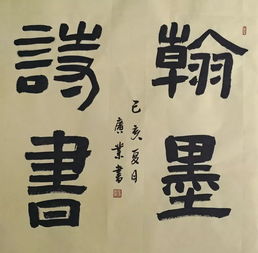 翰墨
詩書
己亥夏月
廣業書